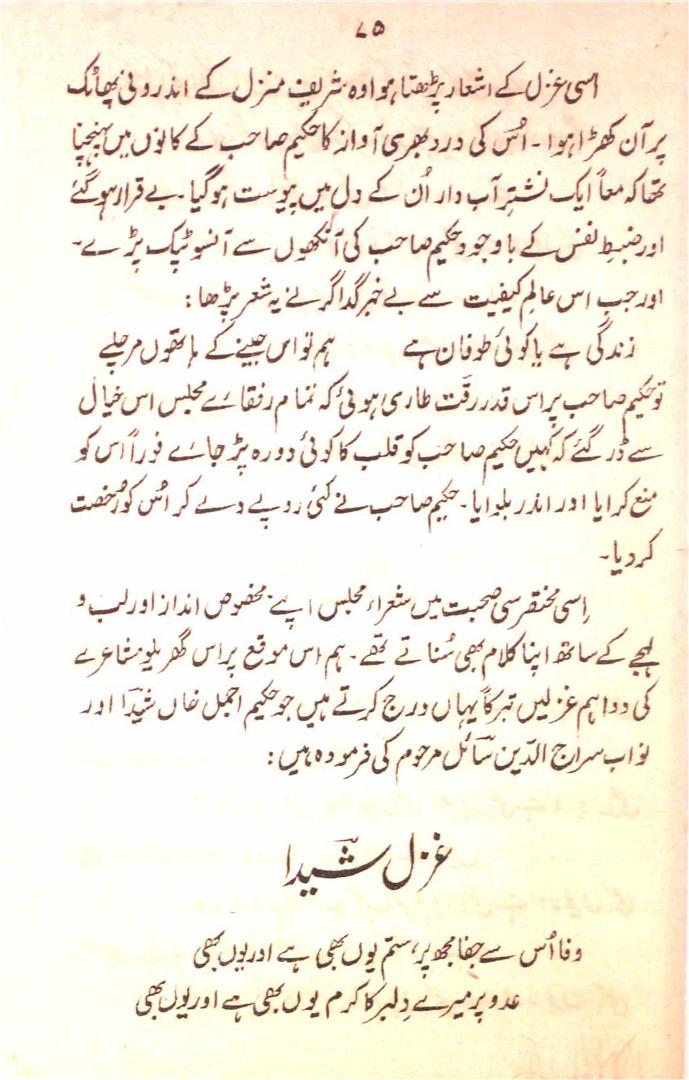 ۷۵
اسی غزل کے اشعار پڑھتا ہوا وہ شریف منزل کے اندرونی پھاٹک
پر آن کھڑا ہوا۔ اُس کی درد بھری آواز کا حکیم صاحب کے کانوں میں پہنچنا
تھا کہ معاً ایک نشترِ آب دار اُن کے دل میں پیوست ہو گیا۔ بے قرار ہو گئے
اور ضبطِ نفس کے باوجود حکیم صاحب کی آنکھوں سے آنسو ٹپک پڑے۔
اور جب اس عالمِ کیفیت سے بے خبر گداگر نے یہ شعر پڑھا:
زندگی ہے یا کوئی طوفان ہے ہم تو اس جینے کے ہاتھوں مر چلے
تو حکیم صاحب پر اس قدر رقّت طاری ہوئی کہ تمام رفقائے مجلس اس خیال
سے ڈر گئے کہ کہیں حکیم صاحب کو قلب کا کوئی دورہ پڑ جائے فوراً اس کو
منع کرایا اور اندر بلوایا۔ حکیم صاحب نے کئی روپے دے کر اُس کو رُخصت
کر دیا۔
اِسی مختصر سی صحبت میں شعراء مجلس اپنے مخصوص انداز اور لب و
لہجے کے ساتھ اپنا کلام بھی سُناتے تھے۔ ہم اس موقع پر اس گھریلو مشاعرے
کی دو اہم غزلیں تبرکاً یہاں درج کرتے ہیں جو حکیم اجمل خاں شیدؔا اور
نواب سراج الدّین سائلؔ مرحوم کی فرمودہ ہیں:
غزل شیدؔا
وفا اُس سے جفا مجھ پر، ستم یوں بھی ہے اور یوں بھی
عدو پر میرے دِلبر کا کرم یوں بھی ہے اور یوں بھی